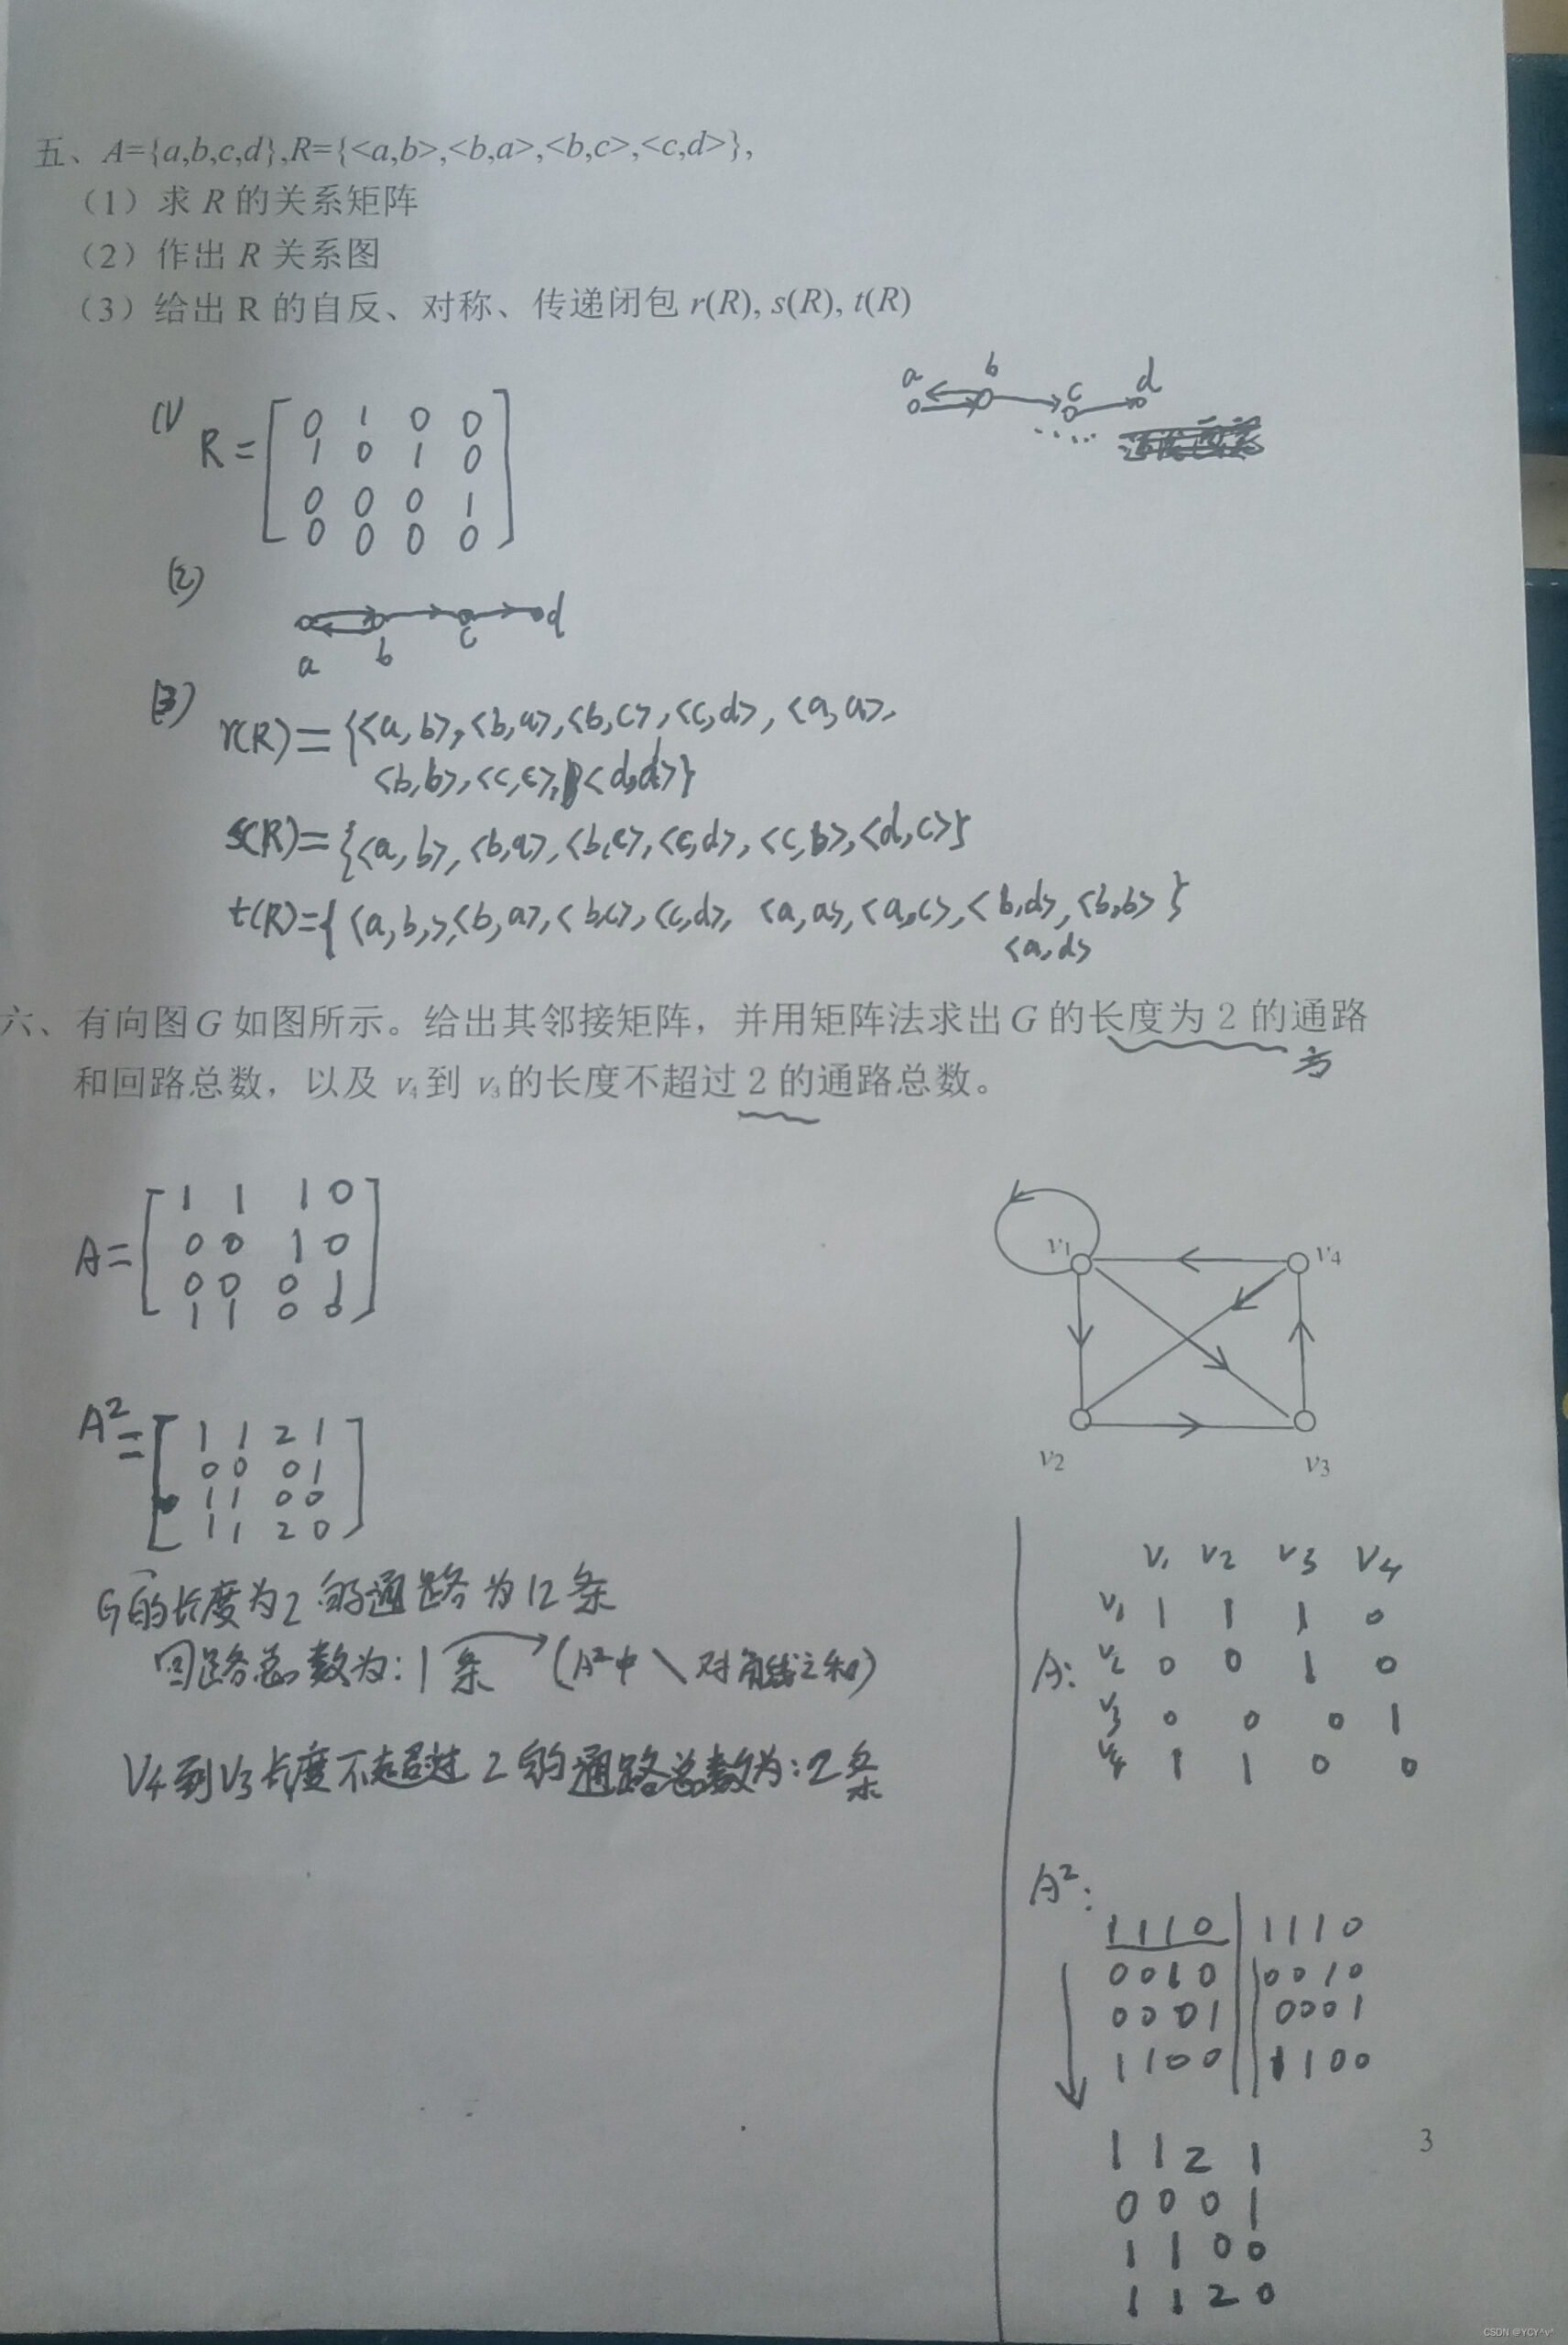 五、A={a,b,c,d},R={<a,b>,<b,a>,<b,c>,<c,d>},
（1）求 R 的关系矩阵
（2）作出 R 关系图
（3）给出 R 的自反、对称、传递闭包 r(R), s(R), t(R)
a b c d
(1)
R=
0 1 0 0
1 0 1 0
0 0 0 1
0 0 0 0
(2)
a b c d
(3)
r(R)={<a,b>,<b,a>,<b,c>,<c,d>,<a,a>,
<b,b>,<c,c>,<d,d>}
s(R)={<a,b>,<b,a>,<b,c>,<c,d>,<c,b>,<d,c>}
t(R)={<a,b,>,<b,a>,<b,c>,<c,d>, <a,a>,<a,c>,<b,d>,<b,b>}
<a,d>
六、有向图G 如图所示。给出其邻接矩阵，并用矩阵法求出G 的长度为 2 的通路
和回路总数，以及 v4到 v3的长度不超过 2 的通路总数。
A=
1 1 1 0
0 0 1 0
0 0 0 1
1 1 0 0
v1 v4
v2 v3
A²=
1 1 2 1
0 0 0 1
1 1 0 0
1 1 2 0
G的长度为2的通路为12条
回路总数为:1条 (A²中\对角线之和)
V4到V3长度不超过2的通路总数为:2条
V1 V2 V3 V4
A:
V1 1 1 1 0
V2 0 0 1 0
V3 0 0 0 1
V4 1 1 0 0
A²:
1 1 1 0 | 1 1 1 0
0 0 1 0 | 0 0 1 0
0 0 0 1 | 0 0 0 1
1 1 0 0 | 1 1 0 0
1 1 2 1
0 0 0 1
1 1 0 0
1 1 2 0
3
CSDN @YCY^v^